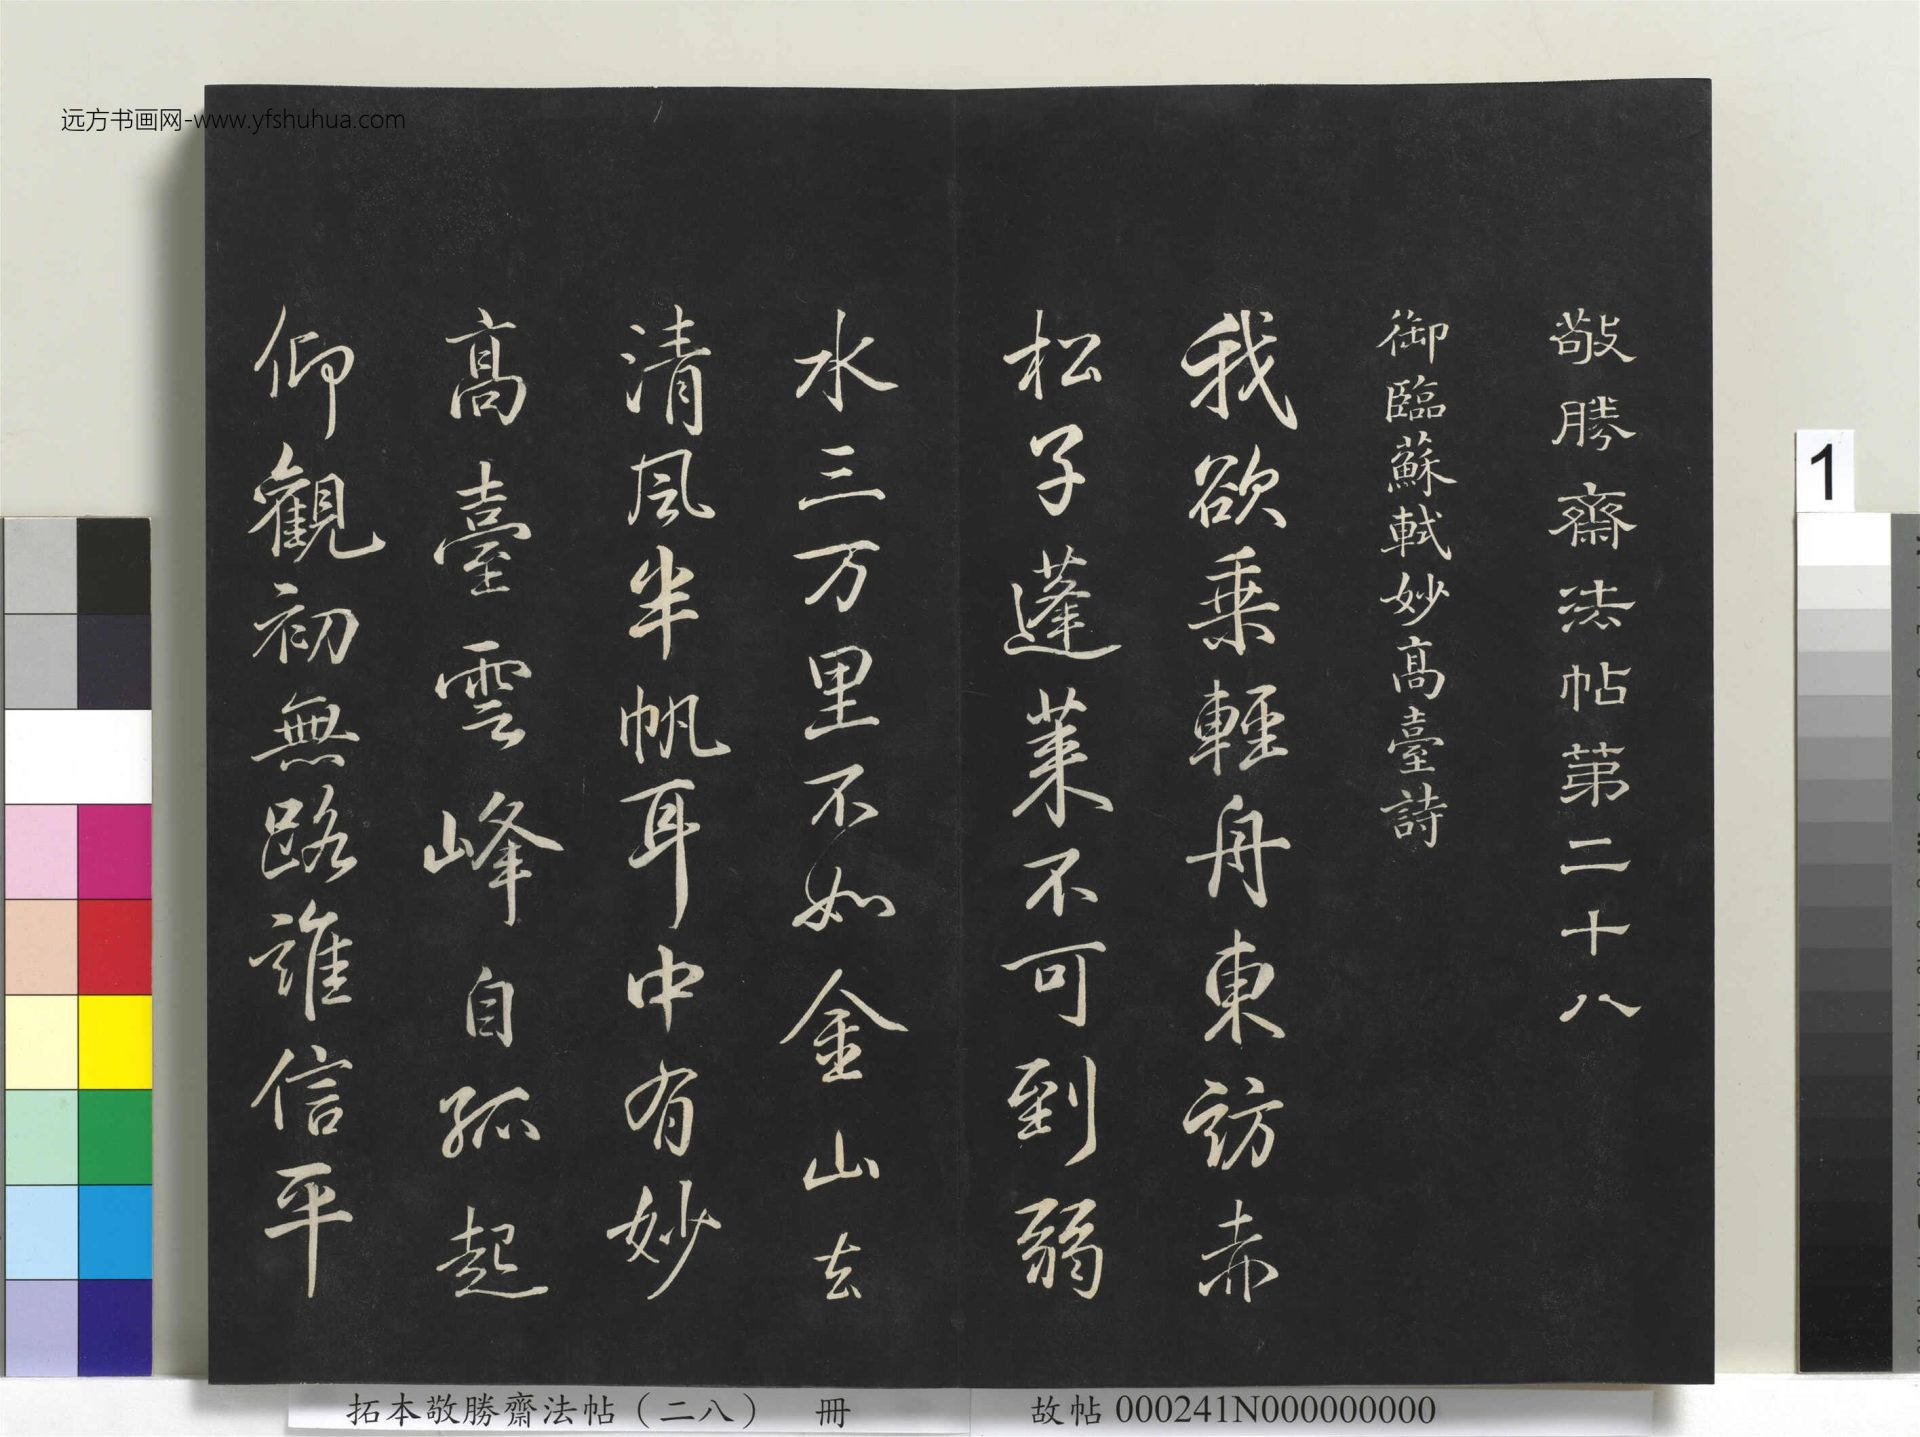 远方书画网-www.yfshuhua.com
敬勝齋法帖第二十八
御臨蘇軾妙高臺詩
我欲乘輕舟東訪赤
松子蓬萊不可到弱
水三万里不如金山去
清風半帆耳中有妙
高臺雲峰自孤起
仰觀初無路誰信平
1
拓本敬勝齋法帖（二八） 冊
故帖 000241N000000000